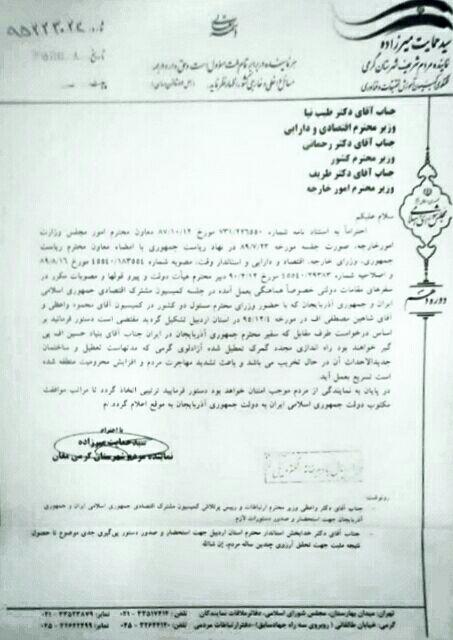 سید حمایت میرزاده
نماینده مردم شریف شهرستان گرمی
هر نماینده در برابر تمام ملت مسؤول است و حق دارد در همه
مسائل داخلی و خارجی کشور اظهار نظر نماید.
شماره ۹۵۲۲۳۰۲۴
تاریخ
جناب آقای دکتر طیب نیا
وزیر محترم اقتصادی و دارایی
جناب آقای دکتر رحمانی
وزیر محترم کشور
جناب آقای دکتر ظریف
وزیر محترم امور خارجه
مجلس شورای اسلامی
دوره نهم
سلام علیکم
احتراماً به استناد نامه شماره ۷۳۱/۲۲۶۵۵۰ مورخ ۸۷/۱۰/۱۲ معاون محترم امور مجلس وزارت
امورخارجه، صورت جلسه مورخه ۸۹/۷/۲۲ در نهاد ریاست جمهوری با امضاء معاون محترم ریاست
جمهوری، وزرای خارجه، اقتصاد و دارایی و استاندار وقت، مصوبه شماره ۴۵۵۴۰/۱۸۳۵۵۴ مورخ ۸۹/۸/۱۶
و اصلاحیه شماره ۴۵۵۴۰/۲۹۳۸۳ مورخ ۹۰/۲/۱۲ دبیر محترم هیأت دولت و پیرو قولها و مصوبات مکرر در
سفرهای مقامات دولتی خصوصاً هماهنگی بعمل آمده در جلسه کمیسیون مشترک اقتصادی جمهوری اسلامی
ایران و جمهوری آذربایجان که با حضور وزرای محترم مسئول دو کشور در کمیسیون آقای محمود واعظی و
آقای شاهین مصطفی اف در مورخه ۹۵/۱۲/۴ در استان اردبیل تشکیل گردید مقتضی است دستور فرمائید بر
اساس درخواست طرف مقابل که سفیر محترم جمهوری آذربایجان در ایران جناب آقای بنیاد حسین اف پی
گیر خواهند بود راه اندازی مجدد گمرک تعطیل شده آزادلوی گرمی که مدتهاست تعطیل و ساختمان
جدیدالاحداث آن در حال تخریب می باشد و باعث تشدید مهاجرت مردم و افزایش محرومیت منطقه شده
است تسریع بعمل آید.
در پایان به نمایندگی از مردم موجب امتنان خواهد بود دستور فرمایید ترتیبی اتخاذ گردد تا مراتب موافقت
مکتوب دولت جمهوری اسلامی ایران به دولت جمهوری آذربایجان به موقع اعلام گردد.
با احترام
سید حمایت میرزاده
نماینده مردم شهرستان گرمی مغان
رونوشت:
- جناب آقای دکتر واعظی وزیر محترم ارتباطات و رییس پرتلاش کمیسیون مشترک اقتصادی جمهوری اسلامی ایران و جمهوری
آذربایجان جهت استحضار و صدور دستورات لازم
- جناب آقای دکتر خدابخش استاندار محترم استان اردبیل جهت استحضار و صدور دستور پی‌گیری جدی موضوع تا حصول
نتیجه مثبت جهت تحقق آرزوی چندین ساله مردم، إن شاالله
تهران: میدان بهارستان، مجلس شورای اسلامی، دفتر ملاقات نمایندگان تلفن: ۳۳۵۱۷۴۱۲ - ۰۲۱ نمابر: ۳۳۵۲۳۸۷۹ - ۰۲۱
گرمی: خیابان طالقانی ( روبروی سه راه جهادسابق) - دفتر ارتباطات مردمی تلفن: ۳۲۶۴۴۱۳۰ - ۰۴۵ نمابر: ۳۲۶۴۴۴۹۹ - ۰۴۵